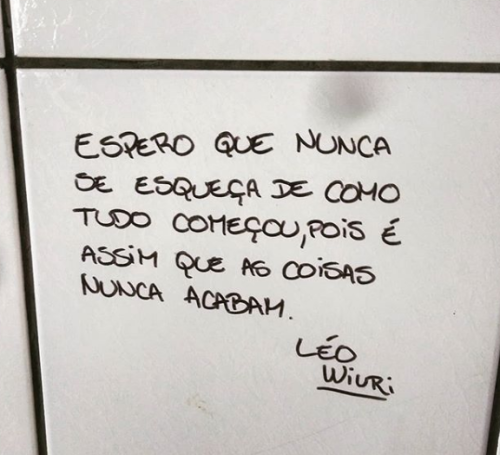 ESPERO QUE NUNCA
SE ESQUEÇA DE COMO
TUDO COMEÇOU, POIS É
ASSIM QUE AS COISAS
NUNCA ACABAM.
LÉO
WIURI